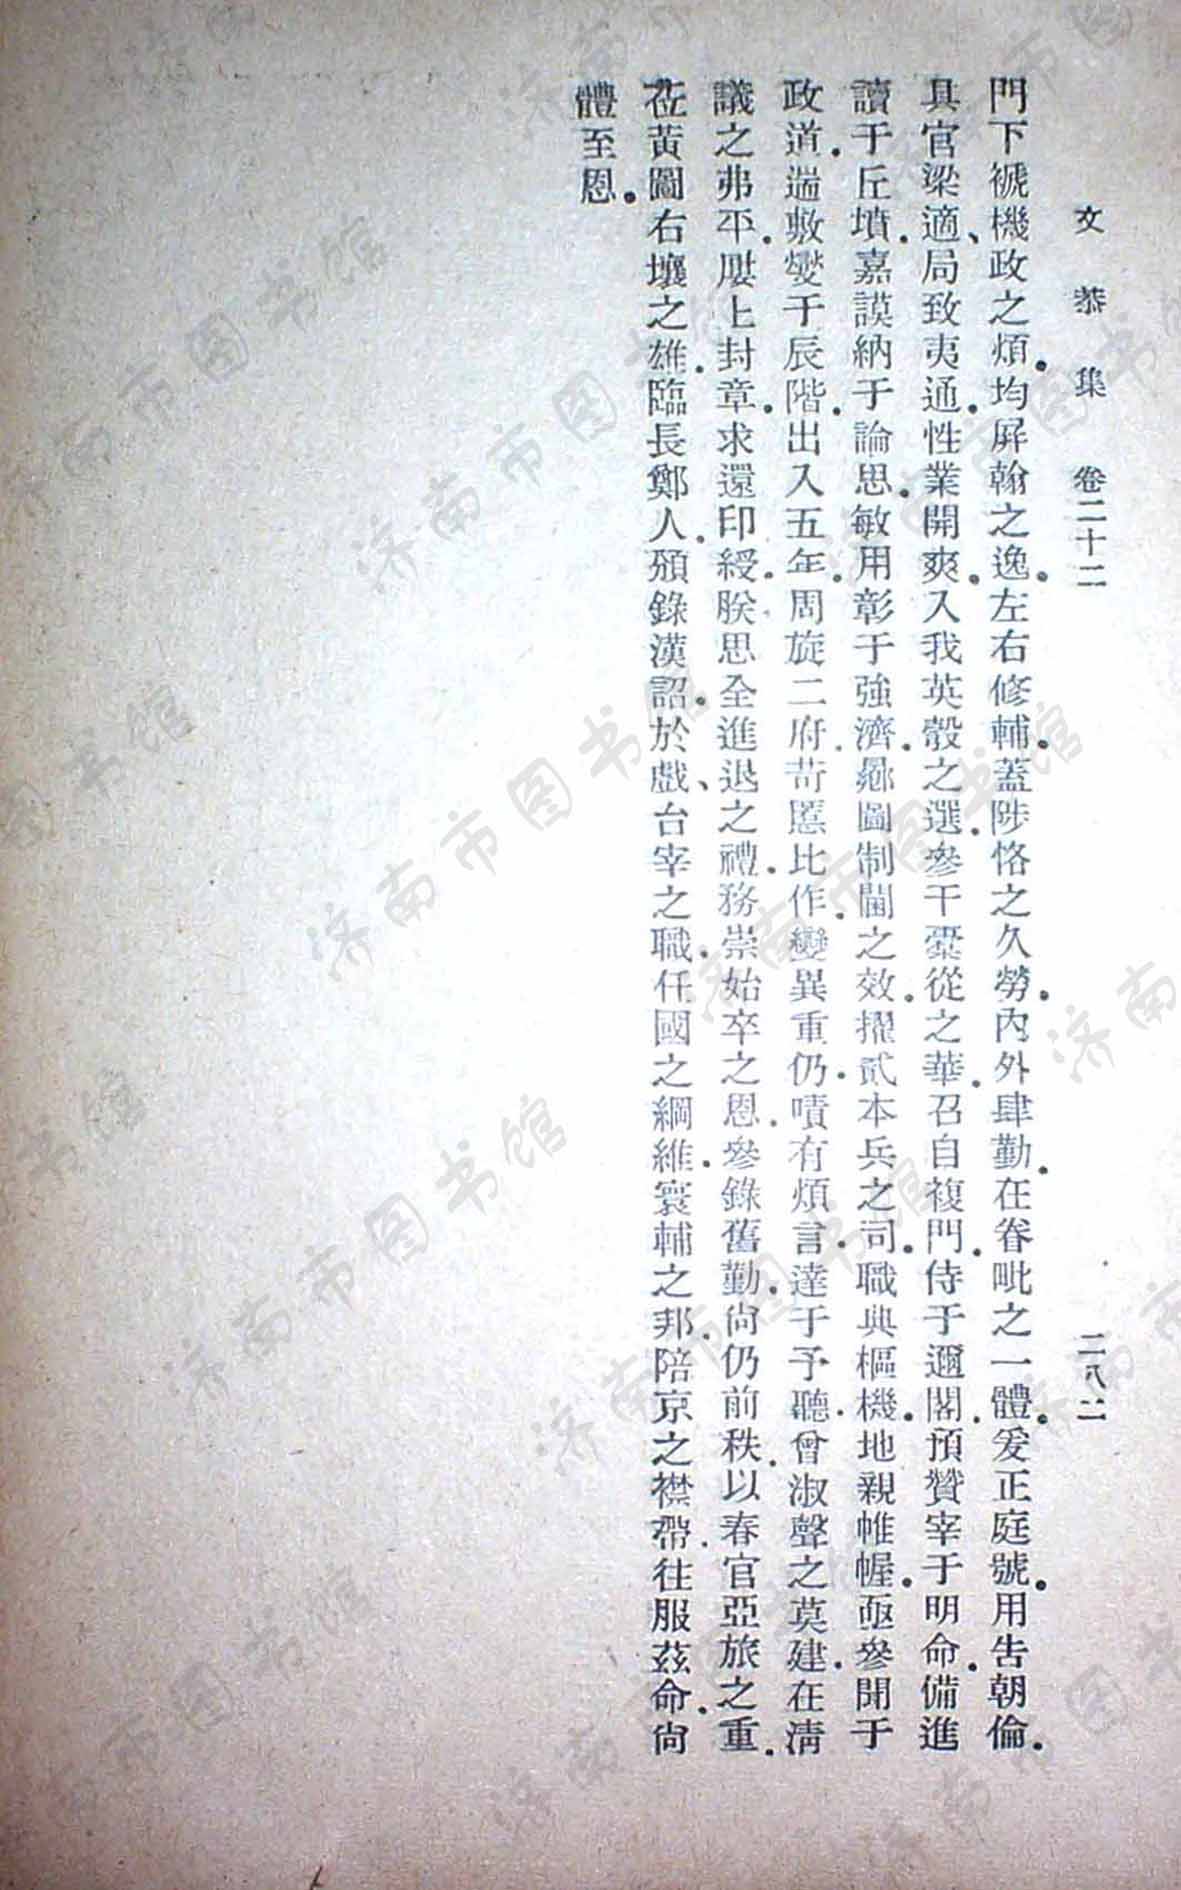 文恭集 卷二十二 二八二
門下褫機政之煩。均屏翰之逸。左右修輔。蓋陟恪之久勞。內外肆勤。在眷毗之一體。爰正庭號。用告朝倫。
具官梁適、局致夷通。性業開爽。入我英彀之選。參干橐從之華。召自複門。侍于邇閣。預贊宰于明命。備進
讀于丘墳。嘉謨納于論思。敏用彰于強濟。圖制閫之效。擢貳本兵之司。職典樞機。地親帷幄。亟參聞于
政道。遄敷燮于辰階。出入五年。周旋二府。苛慝比作。變異重仍。嘖有煩言。達于予聽。曾淑聲之莫建。在清
議之弗平。屢上封章。求還印綬。朕思全進退之禮。務崇始卒之恩。參錄舊勤。尙仍前秩。以春官亞旅之重。
莅黃圖右壤之雄。臨長鄭人。頒錄漢詔。於戲、台宰之職。任國之綱維。寰輔之邦。陪京之襟帶。往服茲命。尙
體至恩。
济南市图书馆